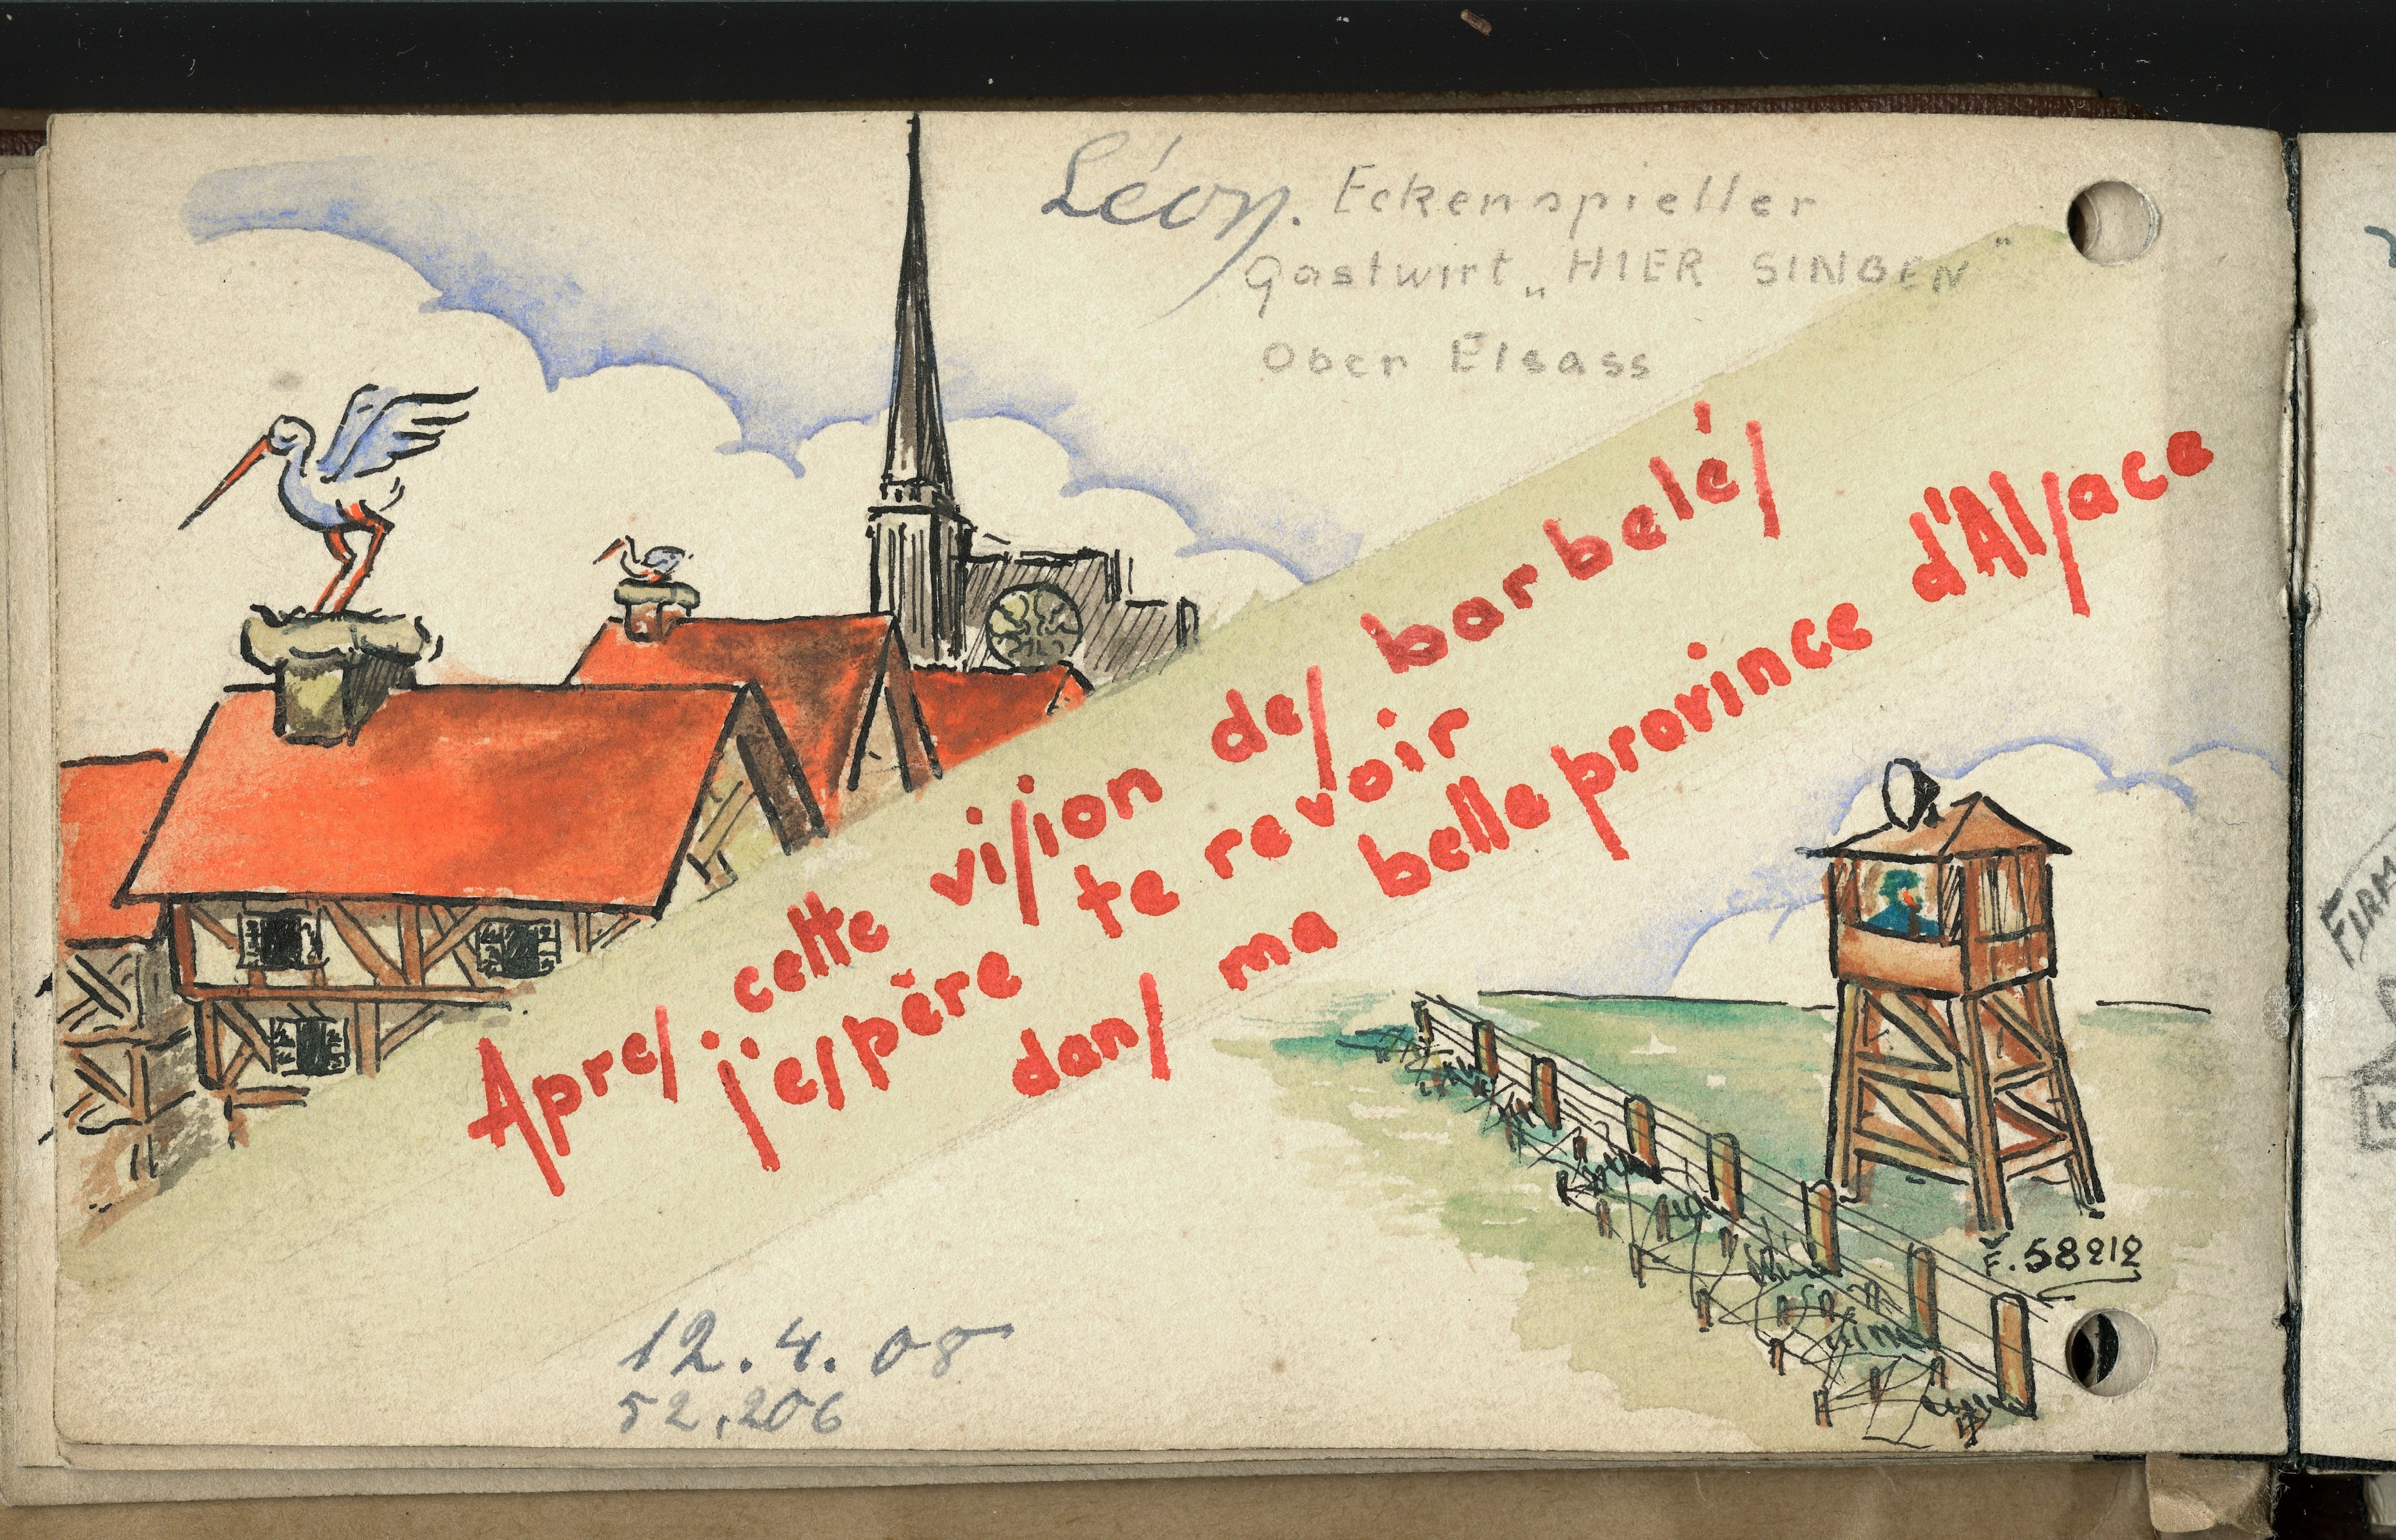 Léon. Eckenspieller
Gastwirt „HIER SINGEN"
Ober Elsass
Apres cette vision des barbelés
j'espère te revoir
dans ma belle province d'Alsace
F. 58212
12.4.08
52.206
FIRM